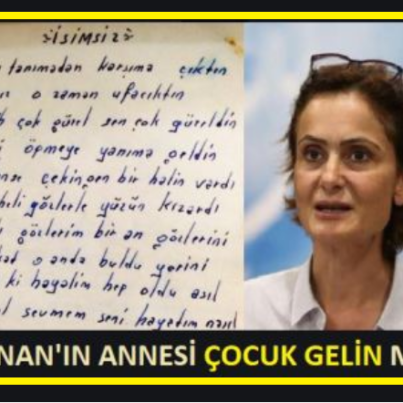 İSİMSİZ
tanımadan karşıma çıktın
o zaman ufacıktın
çok güzel sen çok güzeldin
öpmeye yanıma geldin
çekingen bir halin vardı
gözlerle yüzün kızardı
gözlerim bir an gözlerini
o anda buldu yerini
ki hayalim hep oldu asıl
sevmem seni hayatım nasıl
NAN'IN ANNESİ ÇOCUK GELİN M